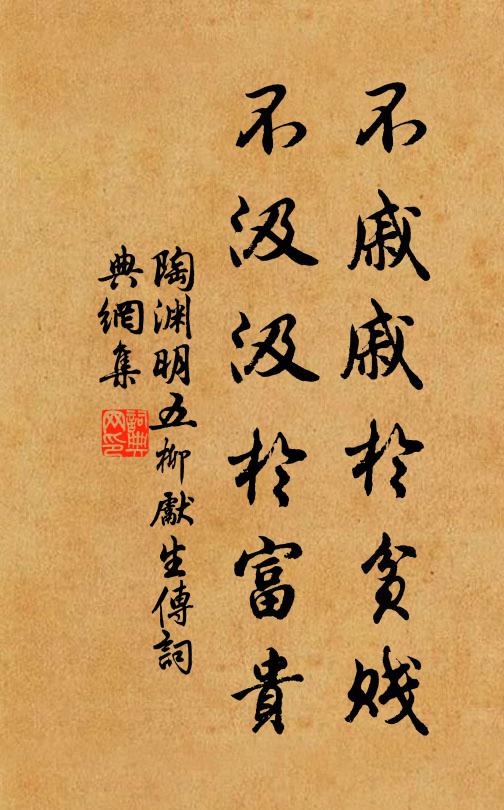 不戚戚於貧賤
不汲汲於富貴
陶渊明五柳獻生傳詞
典網集
詞典網印